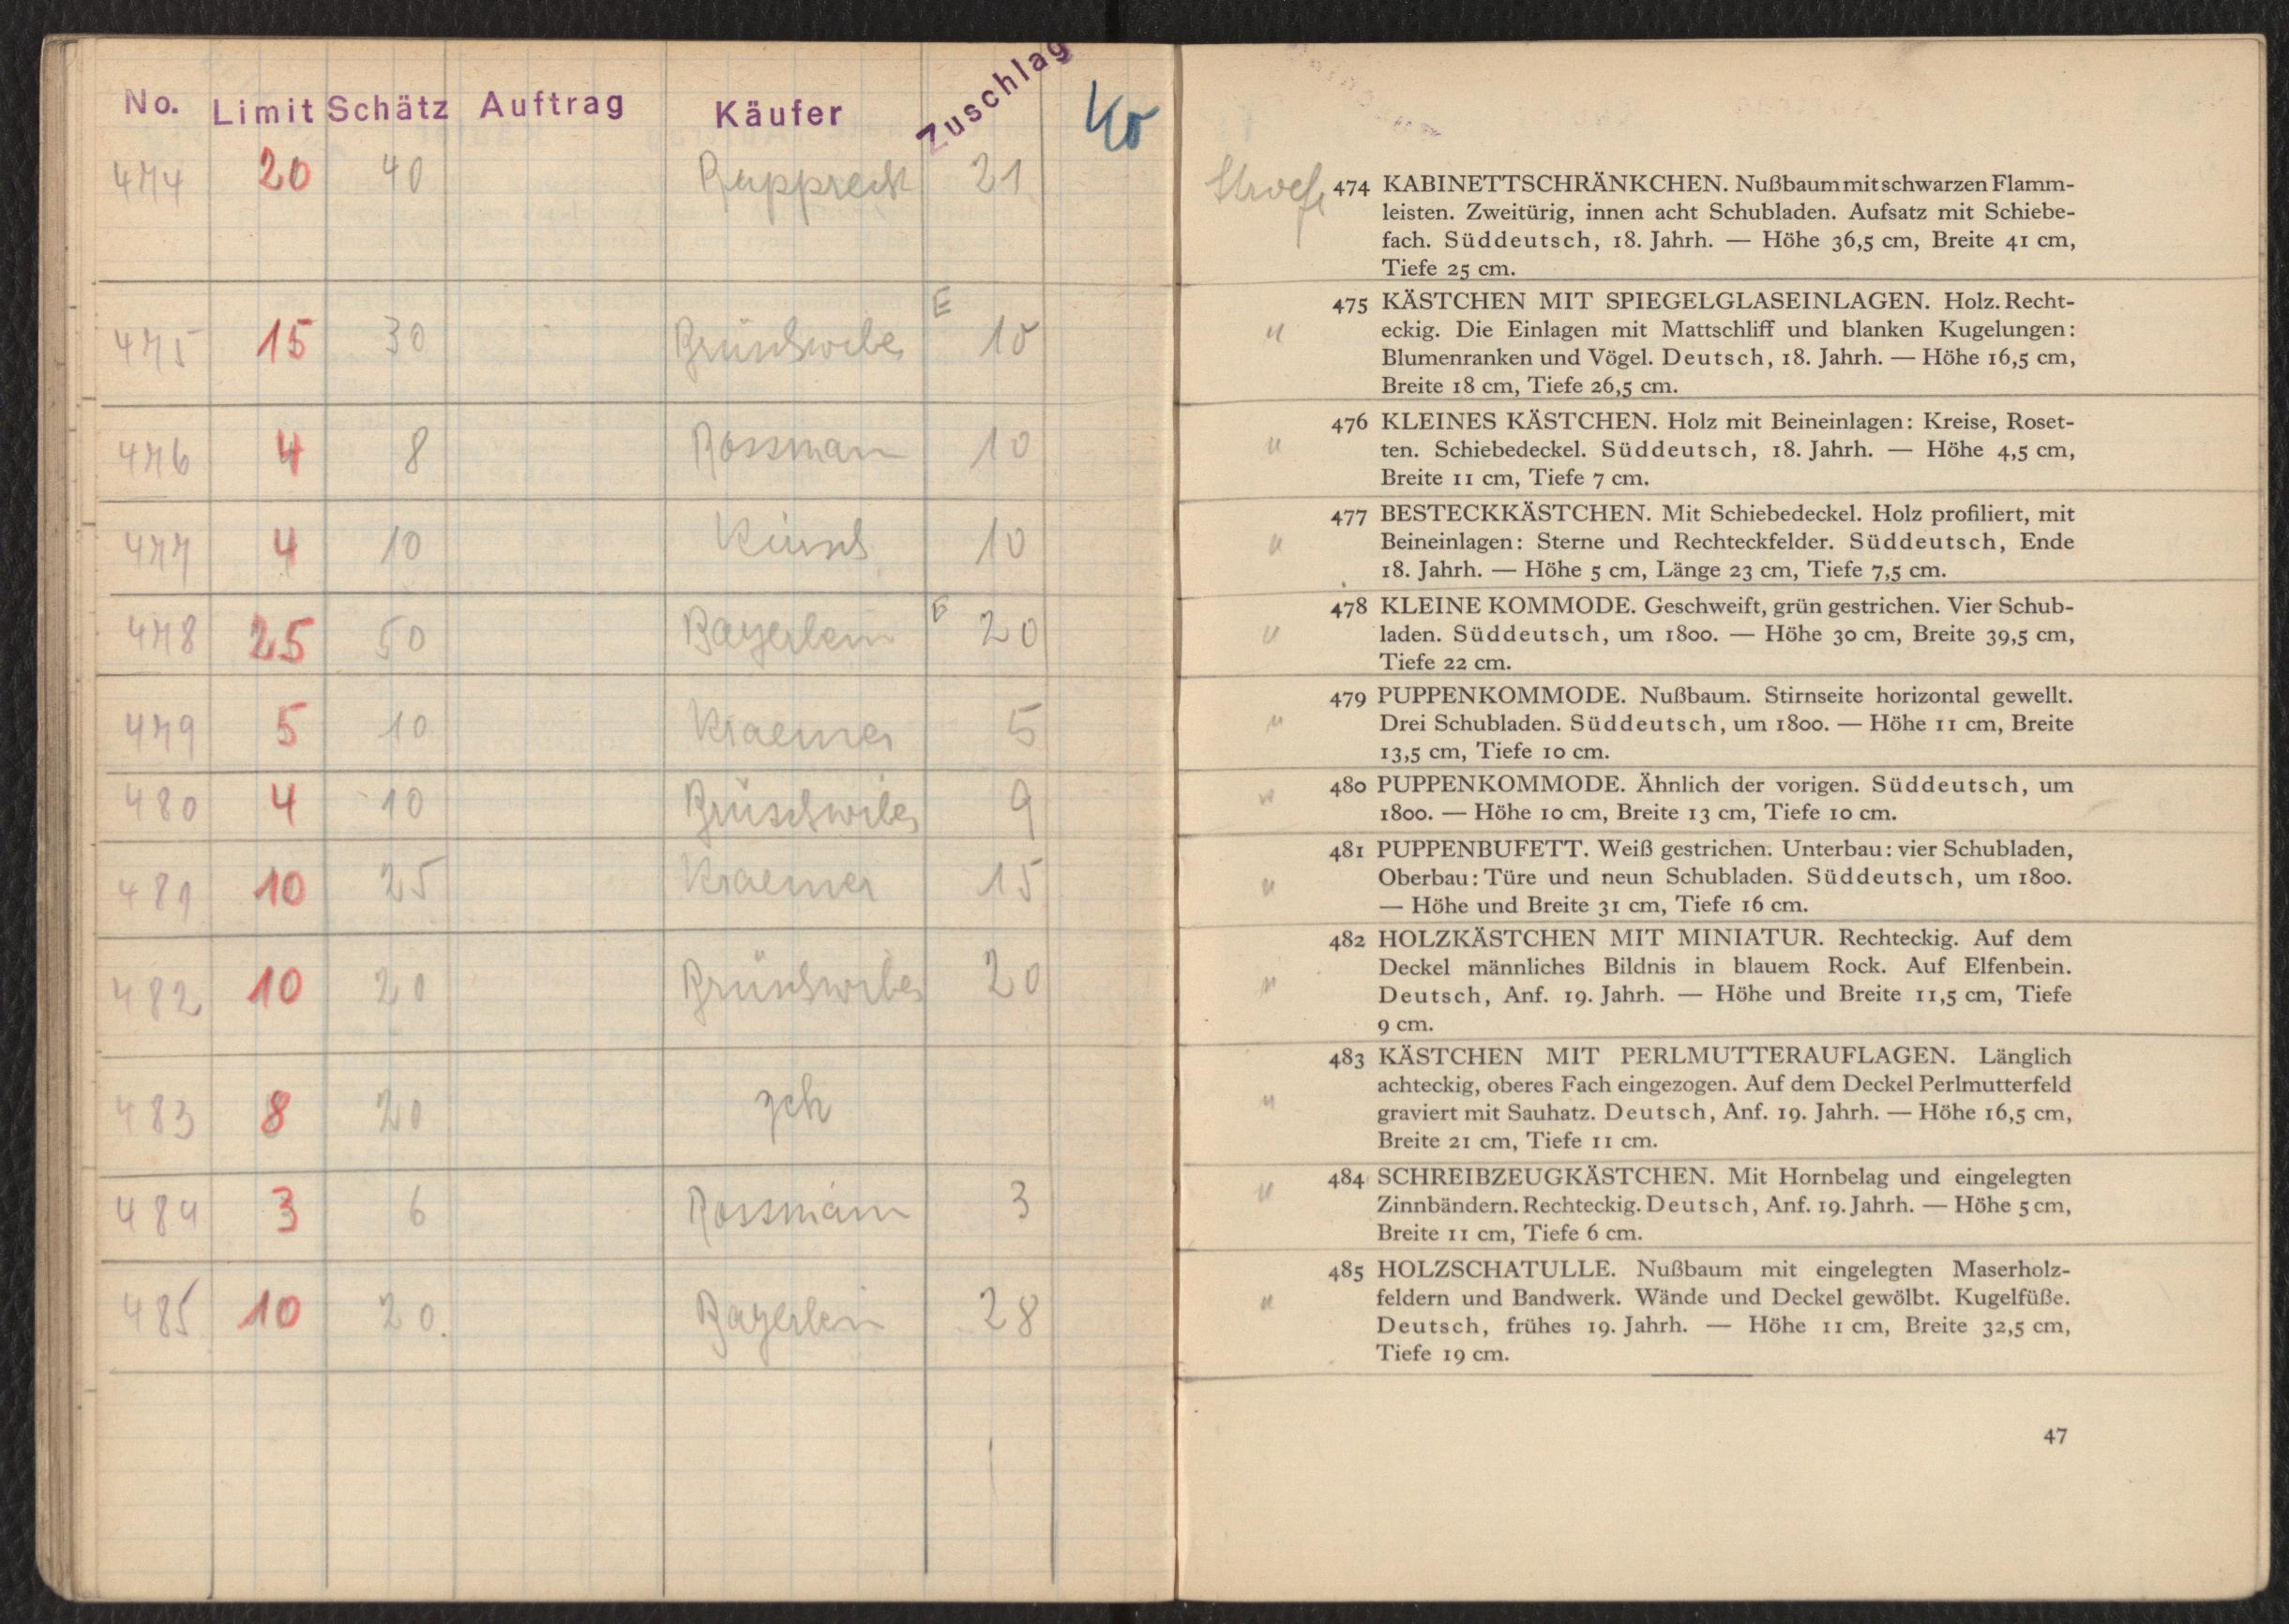 No. Limit Schätz Auftrag Käufer Zuschlag
474 20 40 Rupprecht 21
475 15 30 E 10
476 4 8 Rossman 10
477 4 10 10
478 25 50 Bayerlein E 20
479 5 10 Kraemer 5
480 4 10 9
481 10 25 Kraemer 15
482 10 20 20
483 8 20
484 3 6 Rossmann 3
485 10 20. Bayerlein 28
474 KABINETTSCHRÄNKCHEN. Nußbaum mit schwarzen Flamm-
leisten. Zweitürig, innen acht Schubladen. Aufsatz mit Schiebe-
fach. Süddeutsch, 18. Jahrh. — Höhe 36,5 cm, Breite 41 cm,
Tiefe 25 cm.
475 KÄSTCHEN MIT SPIEGELGLASEINLAGEN. Holz. Recht-
" eckig. Die Einlagen mit Mattschliff und blanken Kugelungen:
Blumenranken und Vögel. Deutsch, 18. Jahrh. — Höhe 16,5 cm,
Breite 18 cm, Tiefe 26,5 cm.
476 KLEINES KÄSTCHEN. Holz mit Beineinlagen: Kreise, Roset-
" ten. Schiebedeckel. Süddeutsch, 18. Jahrh. — Höhe 4,5 cm,
Breite 11 cm, Tiefe 7 cm.
477 BESTECKKÄSTCHEN. Mit Schiebedeckel. Holz profiliert, mit
" Beineinlagen: Sterne und Rechteckfelder. Süddeutsch, Ende
18. Jahrh. — Höhe 5 cm, Länge 23 cm, Tiefe 7,5 cm.
478 KLEINE KOMMODE. Geschweift, grün gestrichen. Vier Schub-
" laden. Süddeutsch, um 1800. — Höhe 30 cm, Breite 39,5 cm,
Tiefe 22 cm.
479 PUPPENKOMMODE. Nußbaum. Stirnseite horizontal gewellt.
" Drei Schubladen. Süddeutsch, um 1800. — Höhe 11 cm, Breite
13,5 cm, Tiefe 10 cm.
" 480 PUPPENKOMMODE. Ähnlich der vorigen. Süddeutsch, um
1800. — Höhe 10 cm, Breite 13 cm, Tiefe 10 cm.
481 PUPPENBUFETT. Weiß gestrichen. Unterbau: vier Schubladen,
" Oberbau: Türe und neun Schubladen. Süddeutsch, um 1800.
— Höhe und Breite 31 cm, Tiefe 16 cm.
482 HOLZKÄSTCHEN MIT MINIATUR. Rechteckig. Auf dem
Deckel männliches Bildnis in blauem Rock. Auf Elfenbein.
" Deutsch, Anf. 19. Jahrh. — Höhe und Breite 11,5 cm, Tiefe
9 cm.
483 KÄSTCHEN MIT PERLMUTTERAUFLAGEN. Länglich
achteckig, oberes Fach eingezogen. Auf dem Deckel Perlmutterfeld
" graviert mit Sauhatz. Deutsch, Anf. 19. Jahrh. — Höhe 16,5 cm,
Breite 21 cm, Tiefe 11 cm.
" 484 SCHREIBZEUGKÄSTCHEN. Mit Hornbelag und eingelegten
Zinnbändern. Rechteckig. Deutsch, Anf. 19. Jahrh. — Höhe 5 cm,
Breite 11 cm, Tiefe 6 cm.
485 HOLZSCHATULLE. Nußbaum mit eingelegten Maserholz-
" feldern und Bandwerk. Wände und Deckel gewölbt. Kugelfüße.
Deutsch, frühes 19. Jahrh. — Höhe 11 cm, Breite 32,5 cm,
Tiefe 19 cm.
47